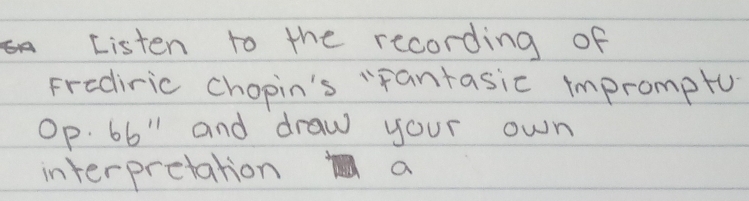 Listen to the recording of
Frediric Chopin's "Fantasic Impromptu
Op. 66" and draw your own
interpretation a